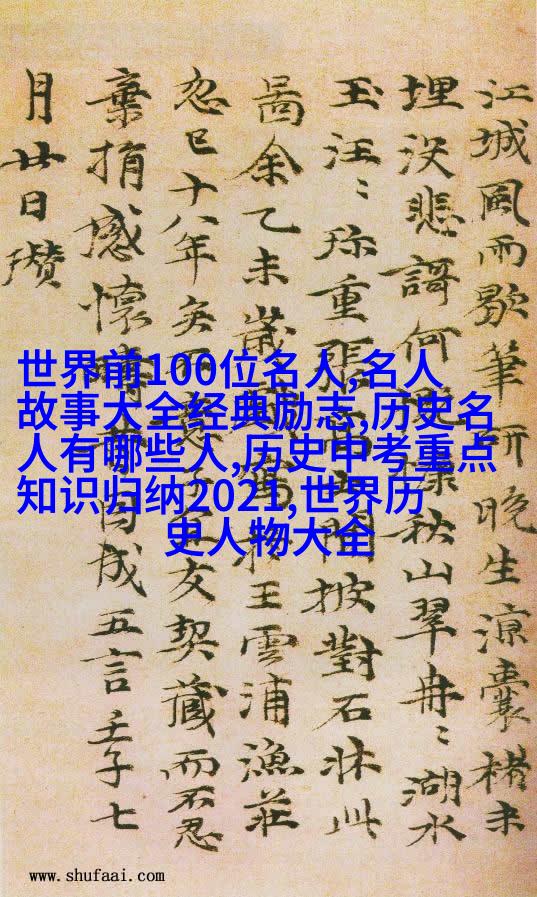 江城風雨歇筆研晚生涼囊楮未
埋没悲謌何秋山翠冉〻湖水
玉汪〻珎重張披對石牀此
啚余乙未歲王雲浦漁莊
忽已十八年矣不友契藏而不忍
棄捐感懷因成五言壬子七
月廿日瓚
世界前100位名人,名人
故事大全经典励志,历史名
人有哪些人,历史中考重点
知识归纳2021,世界历
史人物大全
www.shufaai.com